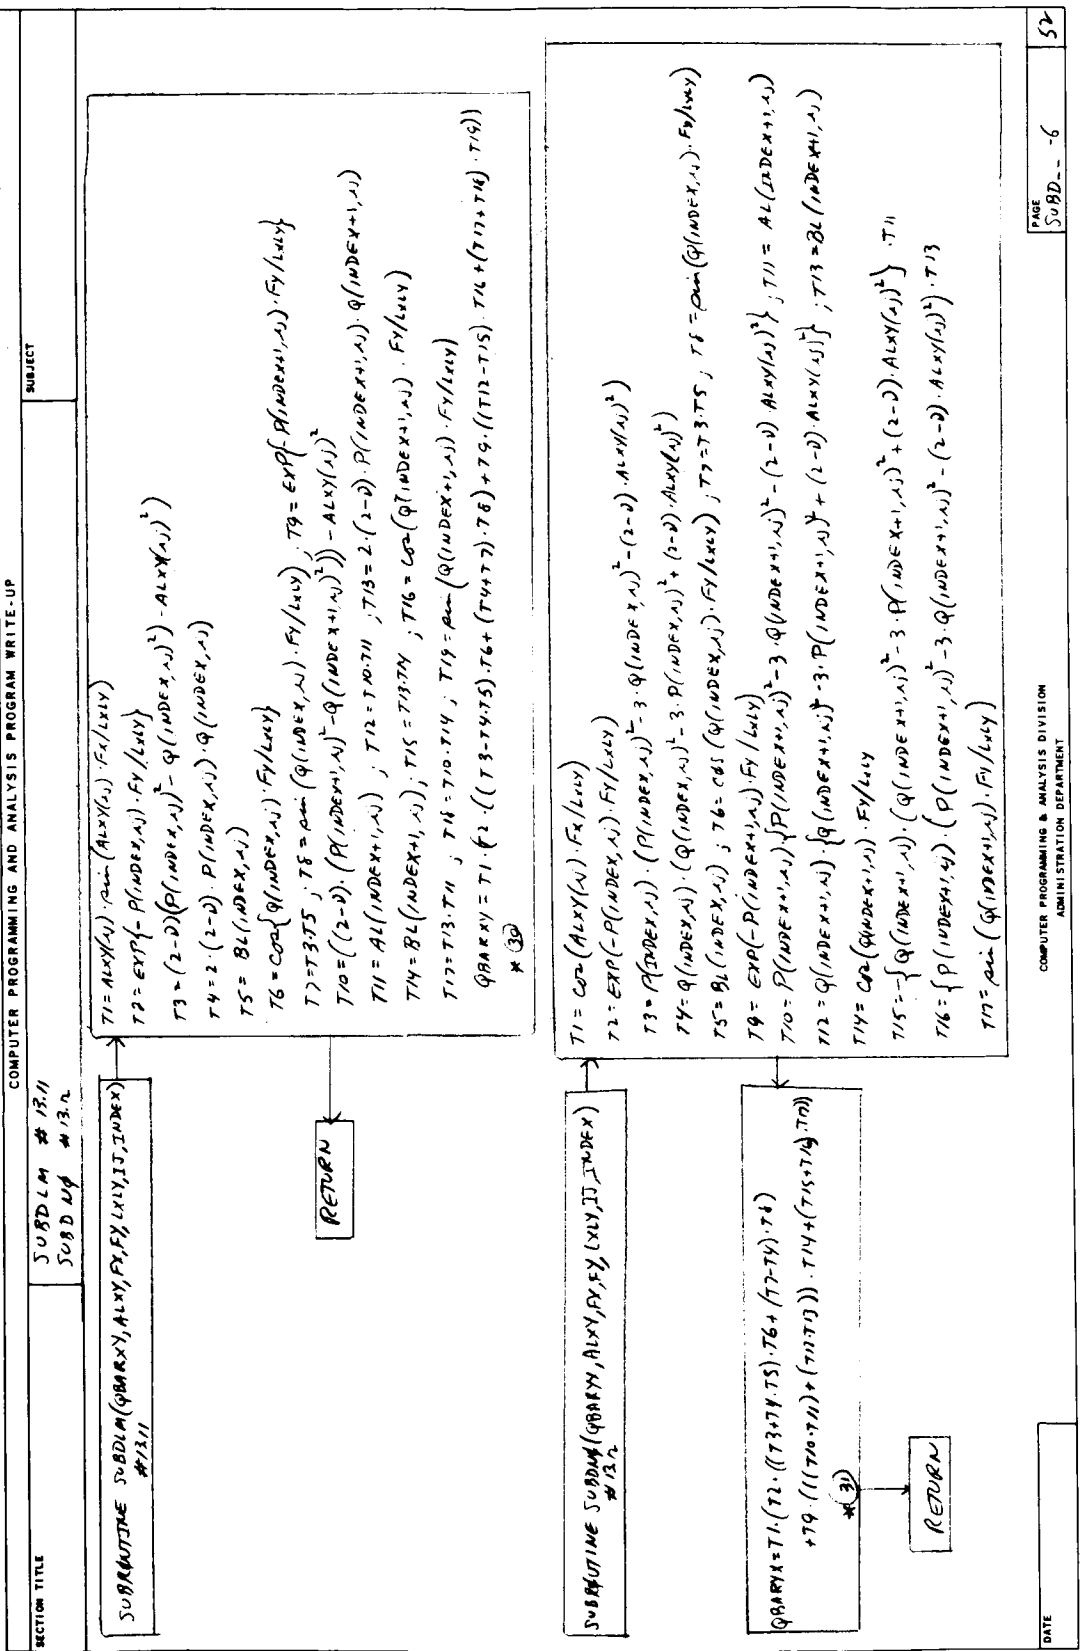 COMPUTER PROGRAMMING AND ANALYSIS PROGRAM WRITE-UP
SECTION TITLE
SUBDLM # 13.11
SUBD NØ # 13.12
SUBJECT
SUBRØUTINE SUBDLM(QBARXY,ALXY,FX,FY,LXLY,IJ,INDEX)
#13.11
T1=ALXY(IJ)·sin(ALXY(IJ)·FX/LXLY)
T2=EXP{-P(INDEX,IJ)·FY/LXLY}
T3=(2-ν)(P(INDEX,IJ)²-Q(INDEX,IJ)²)-ALXY(IJ)²)
T4=2·(2-ν)·P(INDEX,IJ)·Q(INDEX,IJ)
T5=BL(INDEX,IJ)
T6=cos{Q(INDEX,IJ)·FY/LXLY}
T7=T3·T5 ; T8=sin(Q(INDEX,IJ)·FY/LXLY) ; T9=EXP{-P(INDEX+1,IJ)·FY/LXLY}
T10=((2-ν)·(P(INDEX+1,IJ)²-Q(INDEX+1,IJ)²))-ALXY(IJ)²
T11=AL(INDEX+1,IJ) ; T12=T10·T11 ; T13=2·(2-ν)·P(INDEX+1,IJ)·Q(INDEX+1,IJ)
T14=BL(INDEX+1,IJ); T15=T13·T14 ; T16=cos(Q(INDEX+1,IJ)·FY/LXLY)
T17=T13·T11 ; T18=T10·T14 ; T19=sin(Q(INDEX+1,IJ)·FY/LXLY)
QBARXY=T1·(T2·((T3-T4·T5)·T6+(T4+T7)·T8)+T9·((T12-T15)·T16+(T17+T18)·T19))
* (30)
RETURN
SUBRØUTINE SUBDNØ(QBARYX,ALXY,FX,FY,LXLY,IJ,INDEX)
#13.12
T1=cos(ALXY(IJ)·FX/LXLY)
T2=EXP(-P(INDEX,IJ)·FY/LXLY)
T3=P(INDEX,IJ)·(P(INDEX,IJ)²-3·Q(INDEX,IJ)²-(2-ν)·ALXY(IJ)²)
T4=Q(INDEX,IJ)·(Q(INDEX,IJ)²-3·P(INDEX,IJ)²+(2-ν)·ALXY(IJ)²)
T5=BL(INDEX,IJ) ; T6=cos(Q(INDEX,IJ)·FY/LXLY) ; T7=T3·T5 ; T8=sin(Q(INDEX,IJ)·FY/LXLY)
T9=EXP(-P(INDEX+1,IJ)·FY/LXLY)
T10=P(INDEX+1,IJ)·{P(INDEX+1,IJ)²-3·Q(INDEX+1,IJ)²-(2-ν)·ALXY(IJ)²} ; T11=AL(INDEX+1,IJ)
T12=Q(INDEX+1,IJ)·{Q(INDEX+1,IJ)²-3·P(INDEX+1,IJ)²+(2-ν)·ALXY(IJ)²} ; T13=BL(INDEX+1,IJ)
T14=cos(Q(INDEX+1,IJ))·FY/LXLY
T15=-{Q(INDEX+1,IJ)·(Q(INDEX+1,IJ)²-3·P(INDEX+1,IJ)²+(2-ν)·ALXY(IJ)²}·T11
T16={P(INDEX+1,IJ)·(P(INDEX+1,IJ)²-3·Q(INDEX+1,IJ)²-(2-ν)·ALXY(IJ)²)·T13
T17=sin(Q(INDEX+1,IJ)·FY/LXLY)
QBARYX=T1·(T2·((T3+T4·T5)·T6+(T7-T4)·T8)
+T9·(((T10·T11)+(T12·T13))·T14+(T15+T16)·T17))
* (31)
RETURN
DATE
COMPUTER PROGRAMMING & ANALYSIS DIVISION
ADMINISTRATION DEPARTMENT
PAGE
SUBD__ -6
52